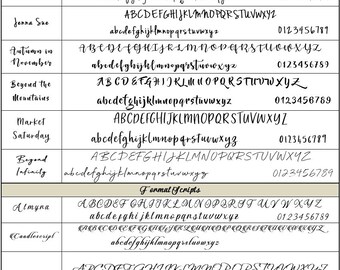 ABCDEFGHIJKLMNOPQRSTUVWXYZ
Jenna Sue
abcdefghijklmnopqrstuvwxyz 0123456789
Autumn in November
ABCDEFGHIJKLMNOPQRSTUVWXYZ
abcdefghijklmnopqrstuvwxyz 0123456789
Beyond the Mountains
ABCDEFGHIJKLMNOPQRSTUVWXYZ
abcdefghijklmnopqrstuvwxyz 0123456789
Market Saturday
ABCDEFGHIJKLMNOPQRSTUVWXYZ
abcdefghijklmnopqrstuvwxyz 0123456789
Beyond Infinity
ABCDEFGHIJKLMNOPQRSTUVWXYZ
abcdefghijklmnopqrstuvwxyz 0123456789
Formal Scripts
Almyra
ABCDEFGHIJKLMNOPQRSTUVWXYZ
abcdefghijklmnopqrstuvwxyz 0123456789
Candlescript
ABCDEFGHIJKLMNOPQRSTUVWXYZ
abcdefghijklmnopqrstuvwxyz 0123456789
ABCDEFGHIJKLMNOPQRSTUVWXYZ